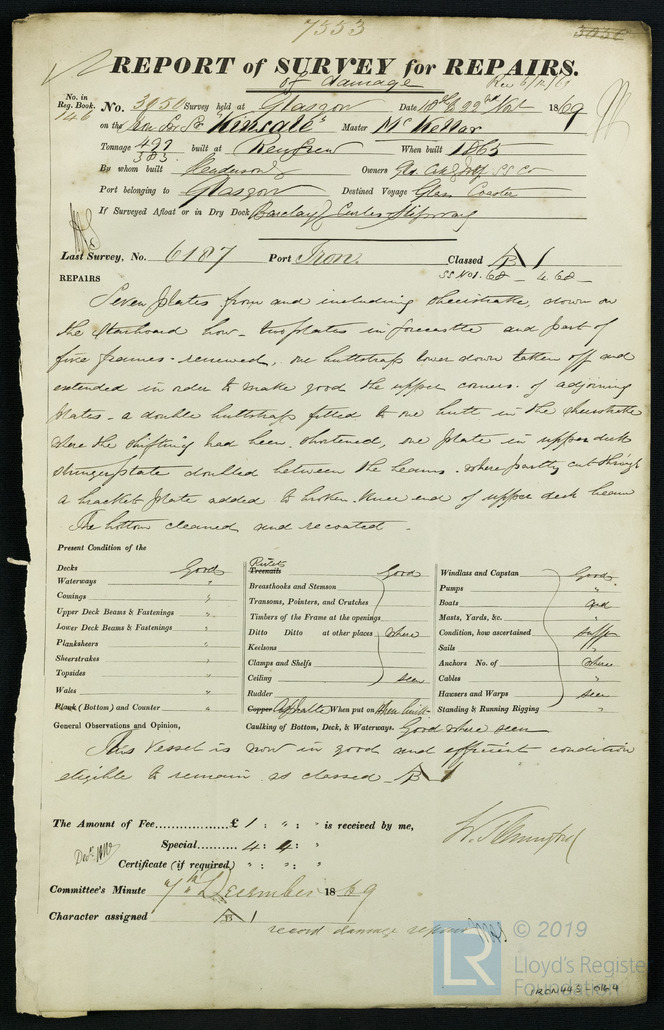 7553
3050
REPORT of SURVEY for REPAIRS.
of damage
Rec 6/12/69
No. in Reg. Book. 146
No. 3050 Survey held at Glasgow Date 10th & 22nd Novr 1869
on the Iron Scr Sr "Kinsale" Master McKellar
Tonnage 497 383 built at Renfrew When built 1865
By whom built Henderson Owners SS Co
Port belonging to Glasgow Destined Voyage Coaster
If Surveyed Afloat or in Dry Dock Barclay Curles Slipway
Last Survey, No. 6187 Port Iron. Classed A 1
SS No1. 68 - 4.68
REPAIRS
Seven plates from and including sheerstrake, down on
the Starboard bow - two plates in forecastle and part of
five frames - renewed, one buttstrap lower down taken off and
extended in order to make good the upper corners of adjoining
plates - a double buttstrap fitted to one butt in the sheerstrake
where the shifting had been shortened, one plate in upper deck
stringerplate doubled between the beams where partly cut through
a bracket plate added to broken knee end of upper deck beam
The bottom cleaned and recoated.
Present Condition of the
Decks Good
Waterways "
Comings "
Upper Deck Beams & Fastenings "
Lower Deck Beams & Fastenings "
Planksheers "
Sheerstrakes "
Topsides "
Wales "
Plank (Bottom) and Counter "
Rivets
Treenails Good
Breasthooks and Stemson
Transoms, Pointers, and Crutches
Timbers of the Frame at the openings
Ditto Ditto at other places where
Keelsons
Clamps and Shelfs
Ceiling seen
Rudder
Copper Asphalte When put on when built
Caulking of Bottom, Deck, & Waterways. Good where seen
Windlass and Capstan Good
Pumps "
Boats and
Masts, Yards, &c. "
Condition, how ascertained sufft
Sails "
Anchors No. of where
Cables "
Hawsers and Warps seen
Standing & Running Rigging "
General Observations and Opinion,
This Vessel is now in good and efficient condition
eligible to remain as classed A 1
The Amount of Fee £ 1 : " : " is received by me,
Special 4 : 4 : "
Certificate (if required) " : " : "
Committee's Minute 7th December 1869
Character assigned A 1
record damage repairs
© 2019
LR
Lloyd's Register
Foundation
IRON443-0164